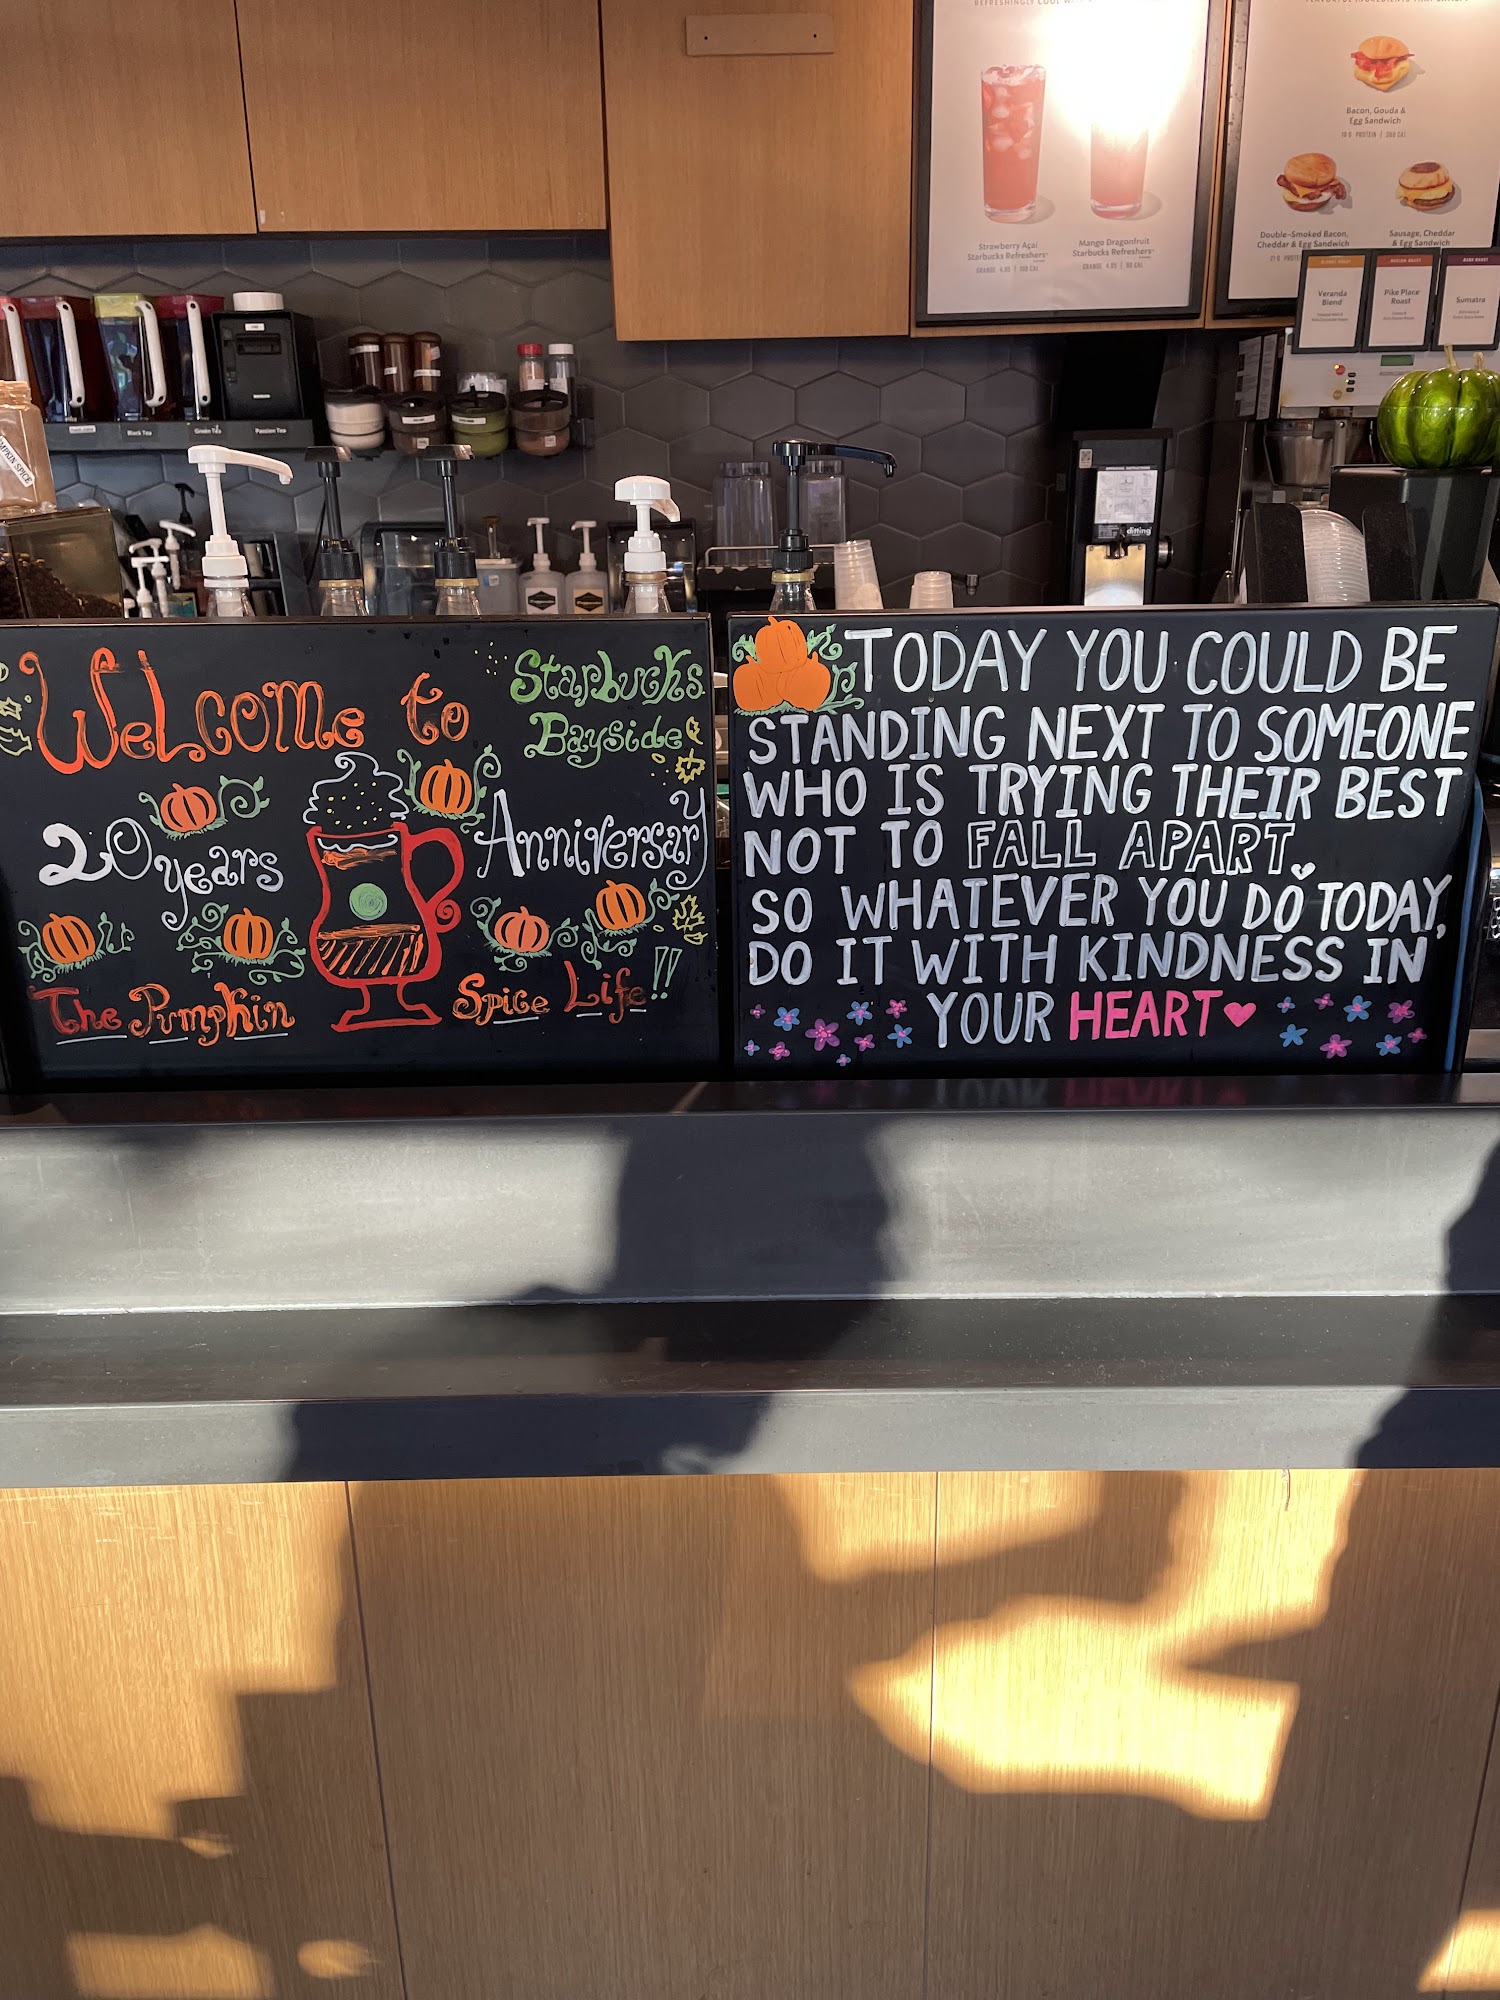 REFRESHINGLY COOL
Strawberry Açaí
Starbucks Refreshers
GRANDE 4.95 | 100 CAL
Mango Dragonfruit
Starbucks Refreshers
GRANDE 4.95 | 90 CAL
Bacon, Gouda &
Egg Sandwich
Double-Smoked Bacon,
Cheddar & Egg Sandwich
Sausage, Cheddar
& Egg Sandwich
BLONDE ROAST
Veranda
Blend
MEDIUM ROAST
Pike Place
Roast
DARK ROAST
Sumatra
Black Tea
Green Tea
Passion Tea
PUMPKIN SPICE
ditting
Welcome to
Starbucks
Bayside
20 years
Anniversary
The Pumpkin
Spice Life!!
TODAY YOU COULD BE
STANDING NEXT TO SOMEONE
WHO IS TRYING THEIR BEST
NOT TO FALL APART.
SO WHATEVER YOU DO TODAY,
DO IT WITH KINDNESS IN
YOUR HEART